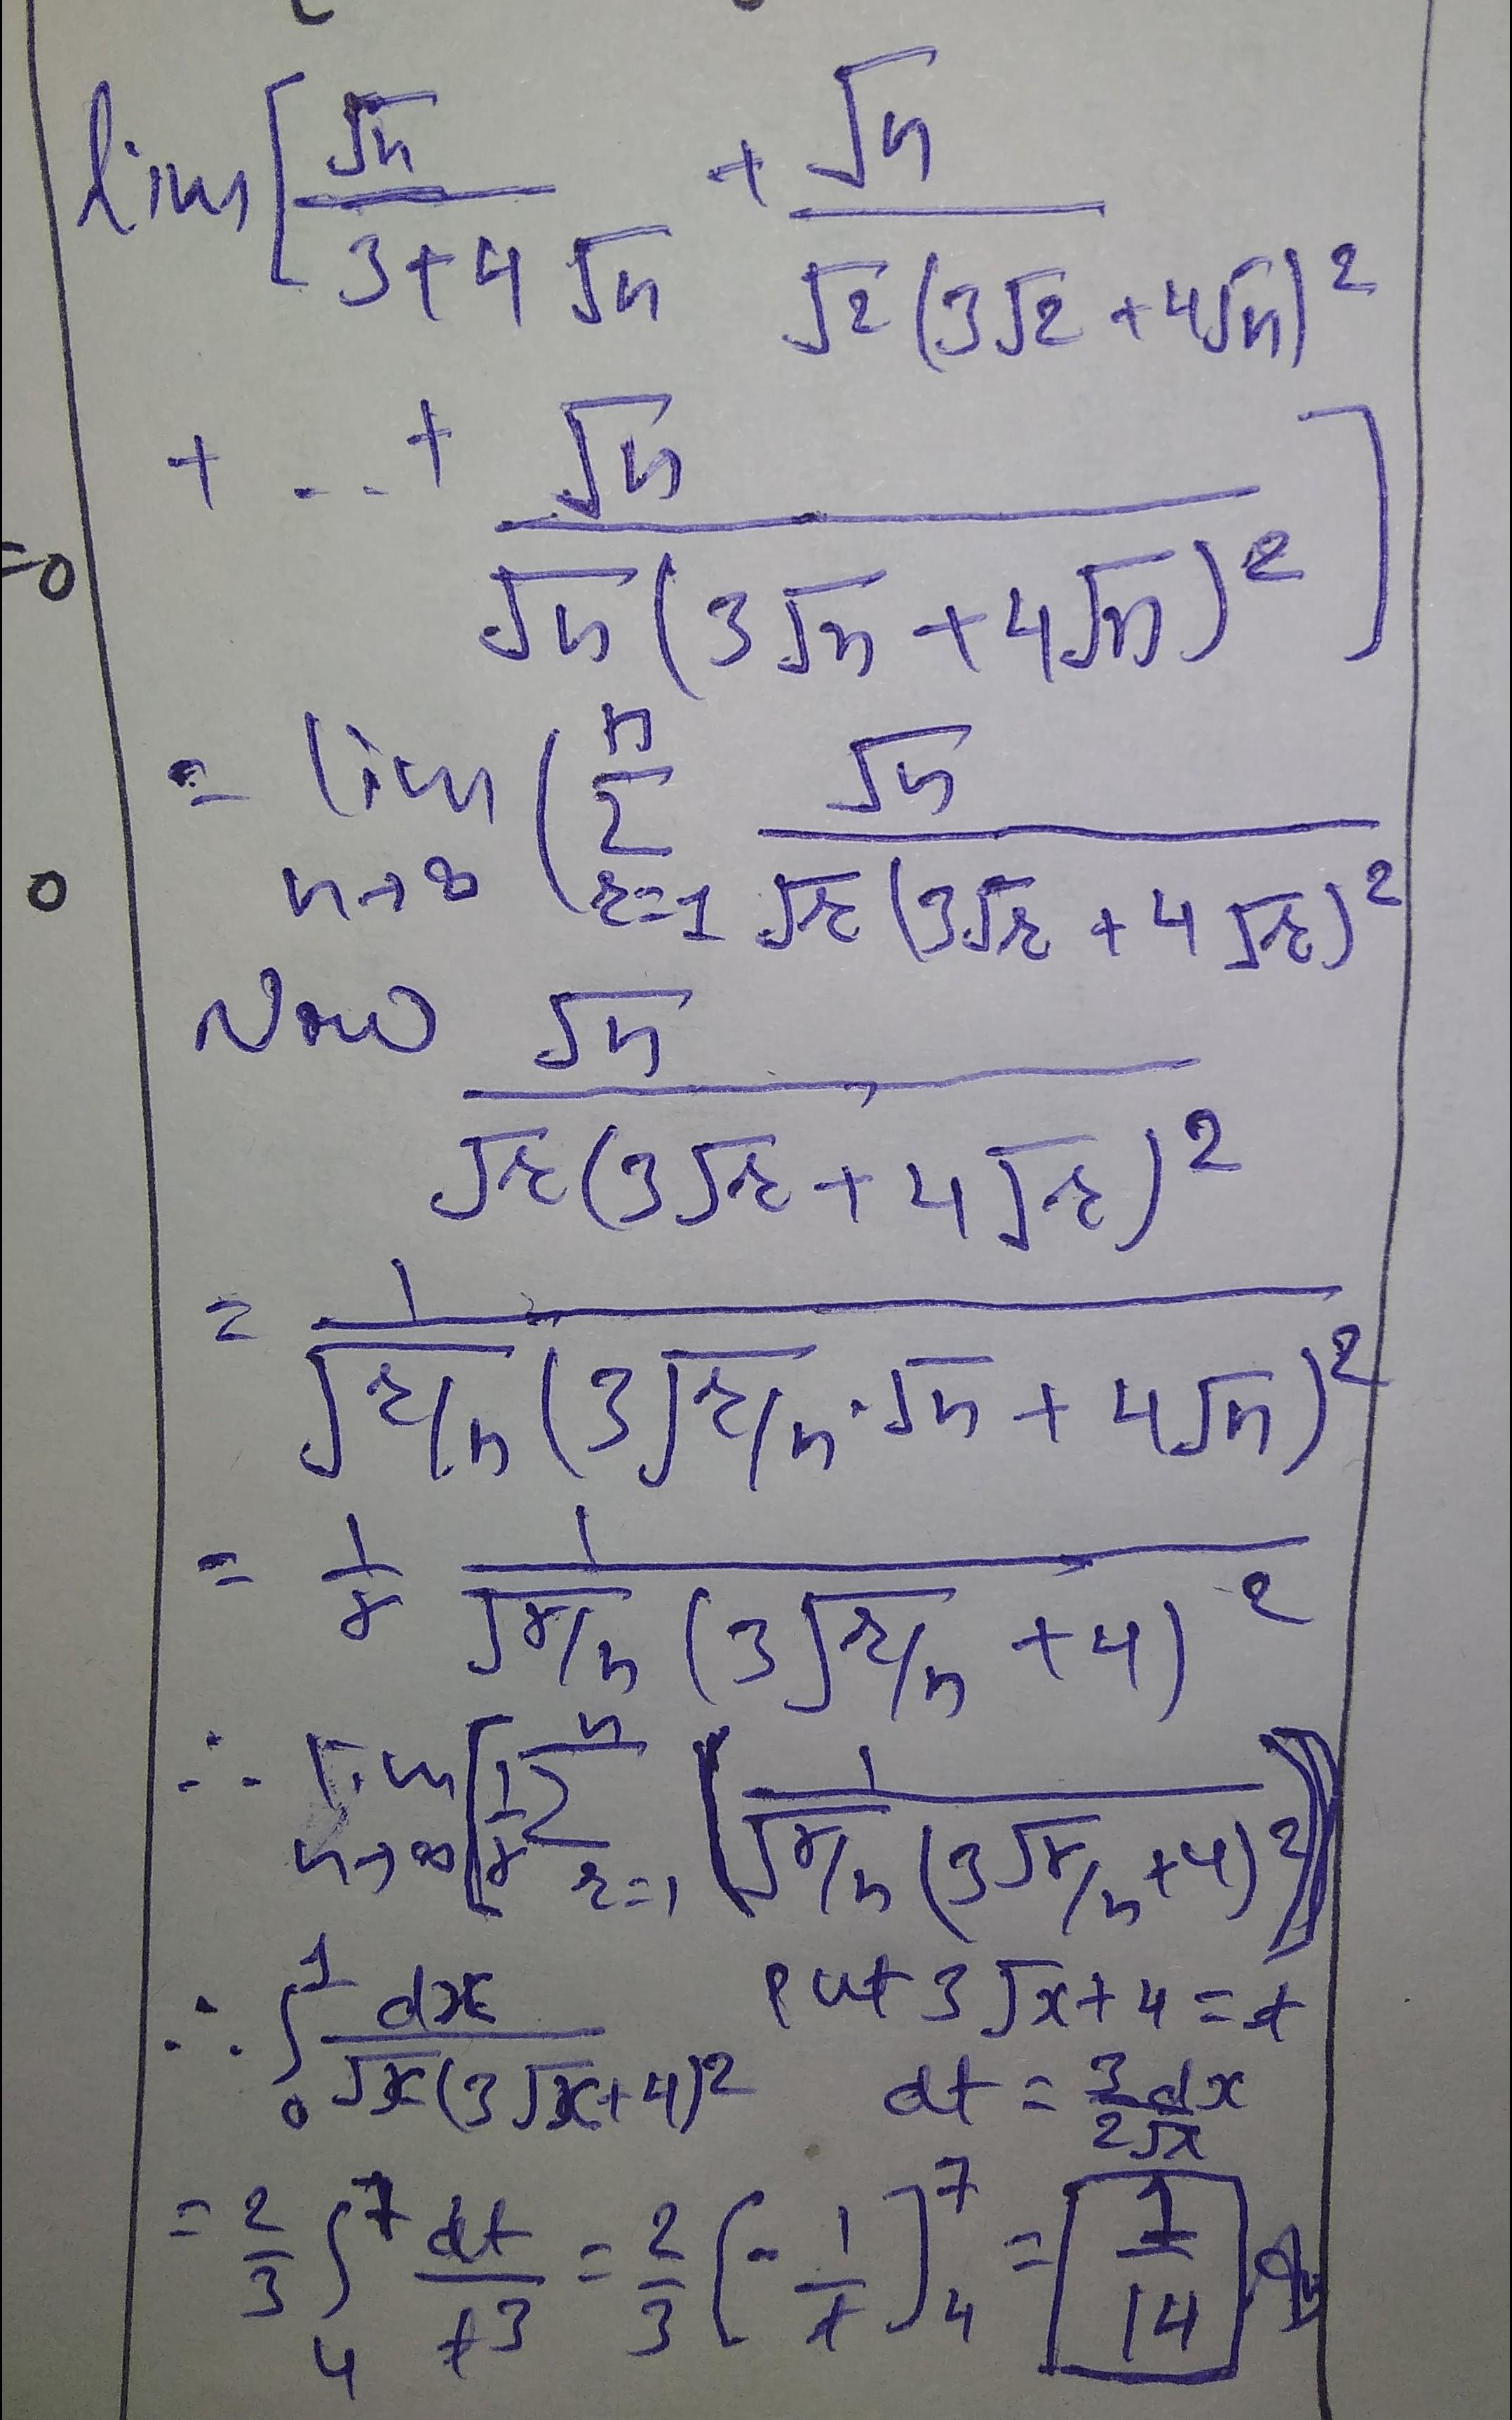 lim [ √n / (3+4√n) + √n / (√2(3√2+4√n)²)
+ ... + √n / (√n(3√n+4√n)²) ]
= lim n→∞ ( n Σ r=1 √n / (√r(3√r+4√r)²)
Now √n / (√r(3√r+4√r)²)
= 1 / (√r/n (3√r/n·√n+4√n)²)
= 1/r 1 / (√r/n (3√r/n+4)²)
∴ lim n→∞ [ 1/r n Σ r=1 ( 1 / (√r/n (3√r/n+4)²) )
∴ ∫₀¹ dx / (√x(3√x+4)²) put 3√x+4=t
dt = 3/(2√x) dx
= 2/3 ∫₄⁷ dt/t3 = 2/3 [-1/t]₄⁷ = 1/14
=0
0